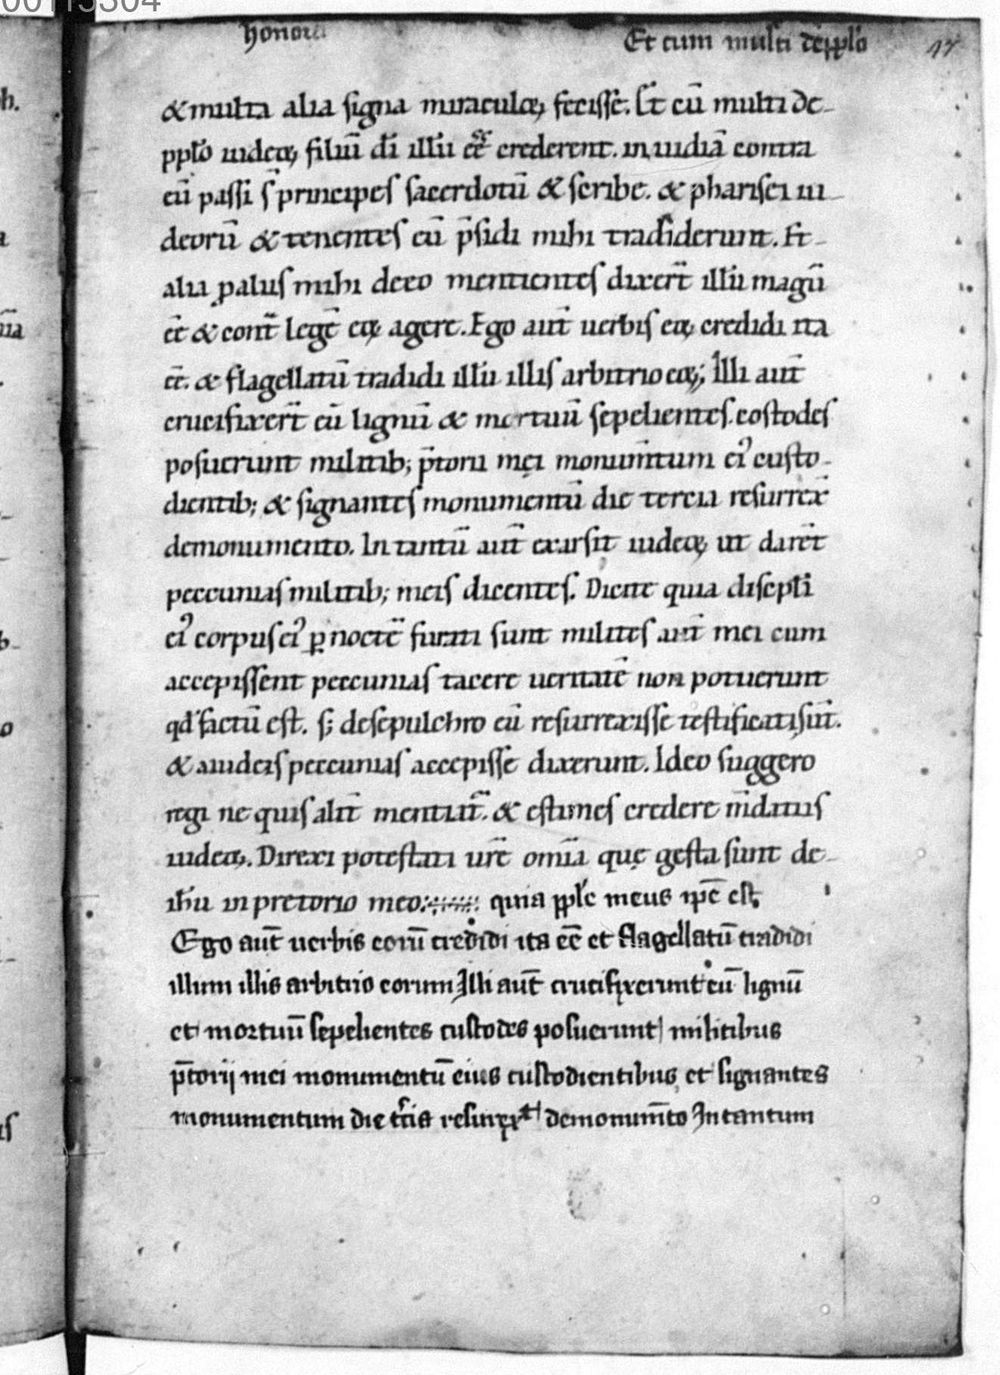 00113304
honora
Et cum multi depp̄lo 47
& multa alia signa miraculoꝝ fecisse. Et cū multi de-
pp̄lo iudeoꝝ filiū dī illū eē crederent. inuidiā contra
eū passi s̄ principes sacerdotū & scribe. & pharisei iu-
deorū & tenentes eū p̄sidi mihi tradiderunt. Et
alia ꝑ alus mihi deeo mentientes dixer̄t illū magū
eē & cont̄ legē eoꝝ agere. Ego aut̄ uerbis eoꝝ credidi ita
eē. & flagellatū tradidi illū illis arbitrio eoꝝ; Illi aut̄
crucifixer̄t eū lignū & mortuū sepelientes. costodes
posuerunt militib; p̄torii mei monum̄tum ei᾿ custo-
dientib; & signantes monumentū die tercia resurrex̄
demonumento. In tantū aut̄ exarsit iudeoꝝ ut darēt
peccunias militib; meis dicentes. Dicite quia discipl̄i
ei᾿ corpus ei᾿ ꝑ noctē furati sunt milites aut̄ mei cum
accepissent peccunias tacere ueritatē non potuerunt
qd̄ factū est. s; desepulchro eū resurrexisse testificati sūt.
& aiudeis peccunias accepisse dixerunt. Ideo suggero
regi ne quis alit̄ mentiat̄. & estimes credere m̄datiis
iudeoꝝ. Direxi potestati ur̄e om̄ia quę gesta sunt de-
ih̄u in pretorio meo. quia pp̄le meus ip̄e est
Ego aut̄ uerbis eorū credidi ita eē et flagellatū tradidi
illum illis arbitrio eorum Illi aut̄ crucifixerunt eū lignū
et mortuū sepelientes custodes posuerunt militibus
p̄torij mei monumentū eius custodientibus et signantes
monumentum die t̄cia resurrex̄t demonum̄to In tantum